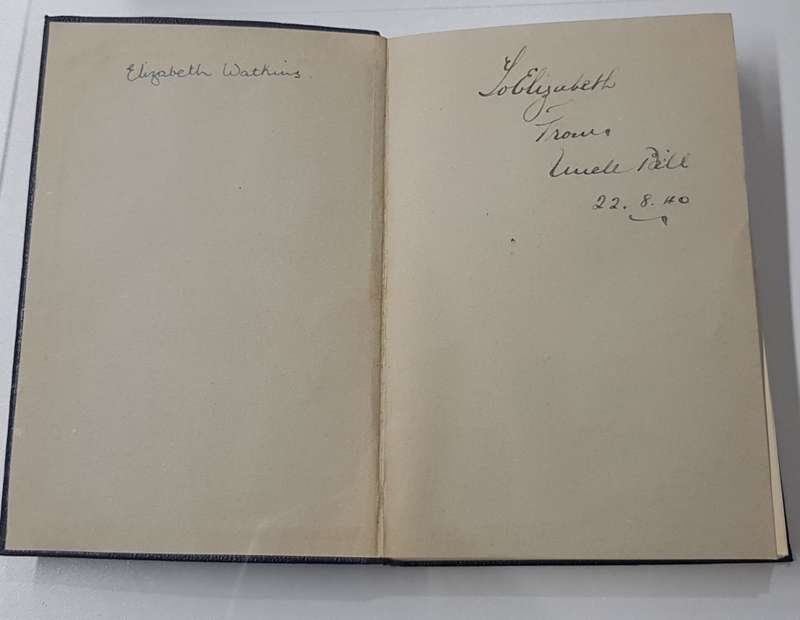 Elizabeth Watkins.
To Elizabeth
From
Uncle Bill
22. 8. 40